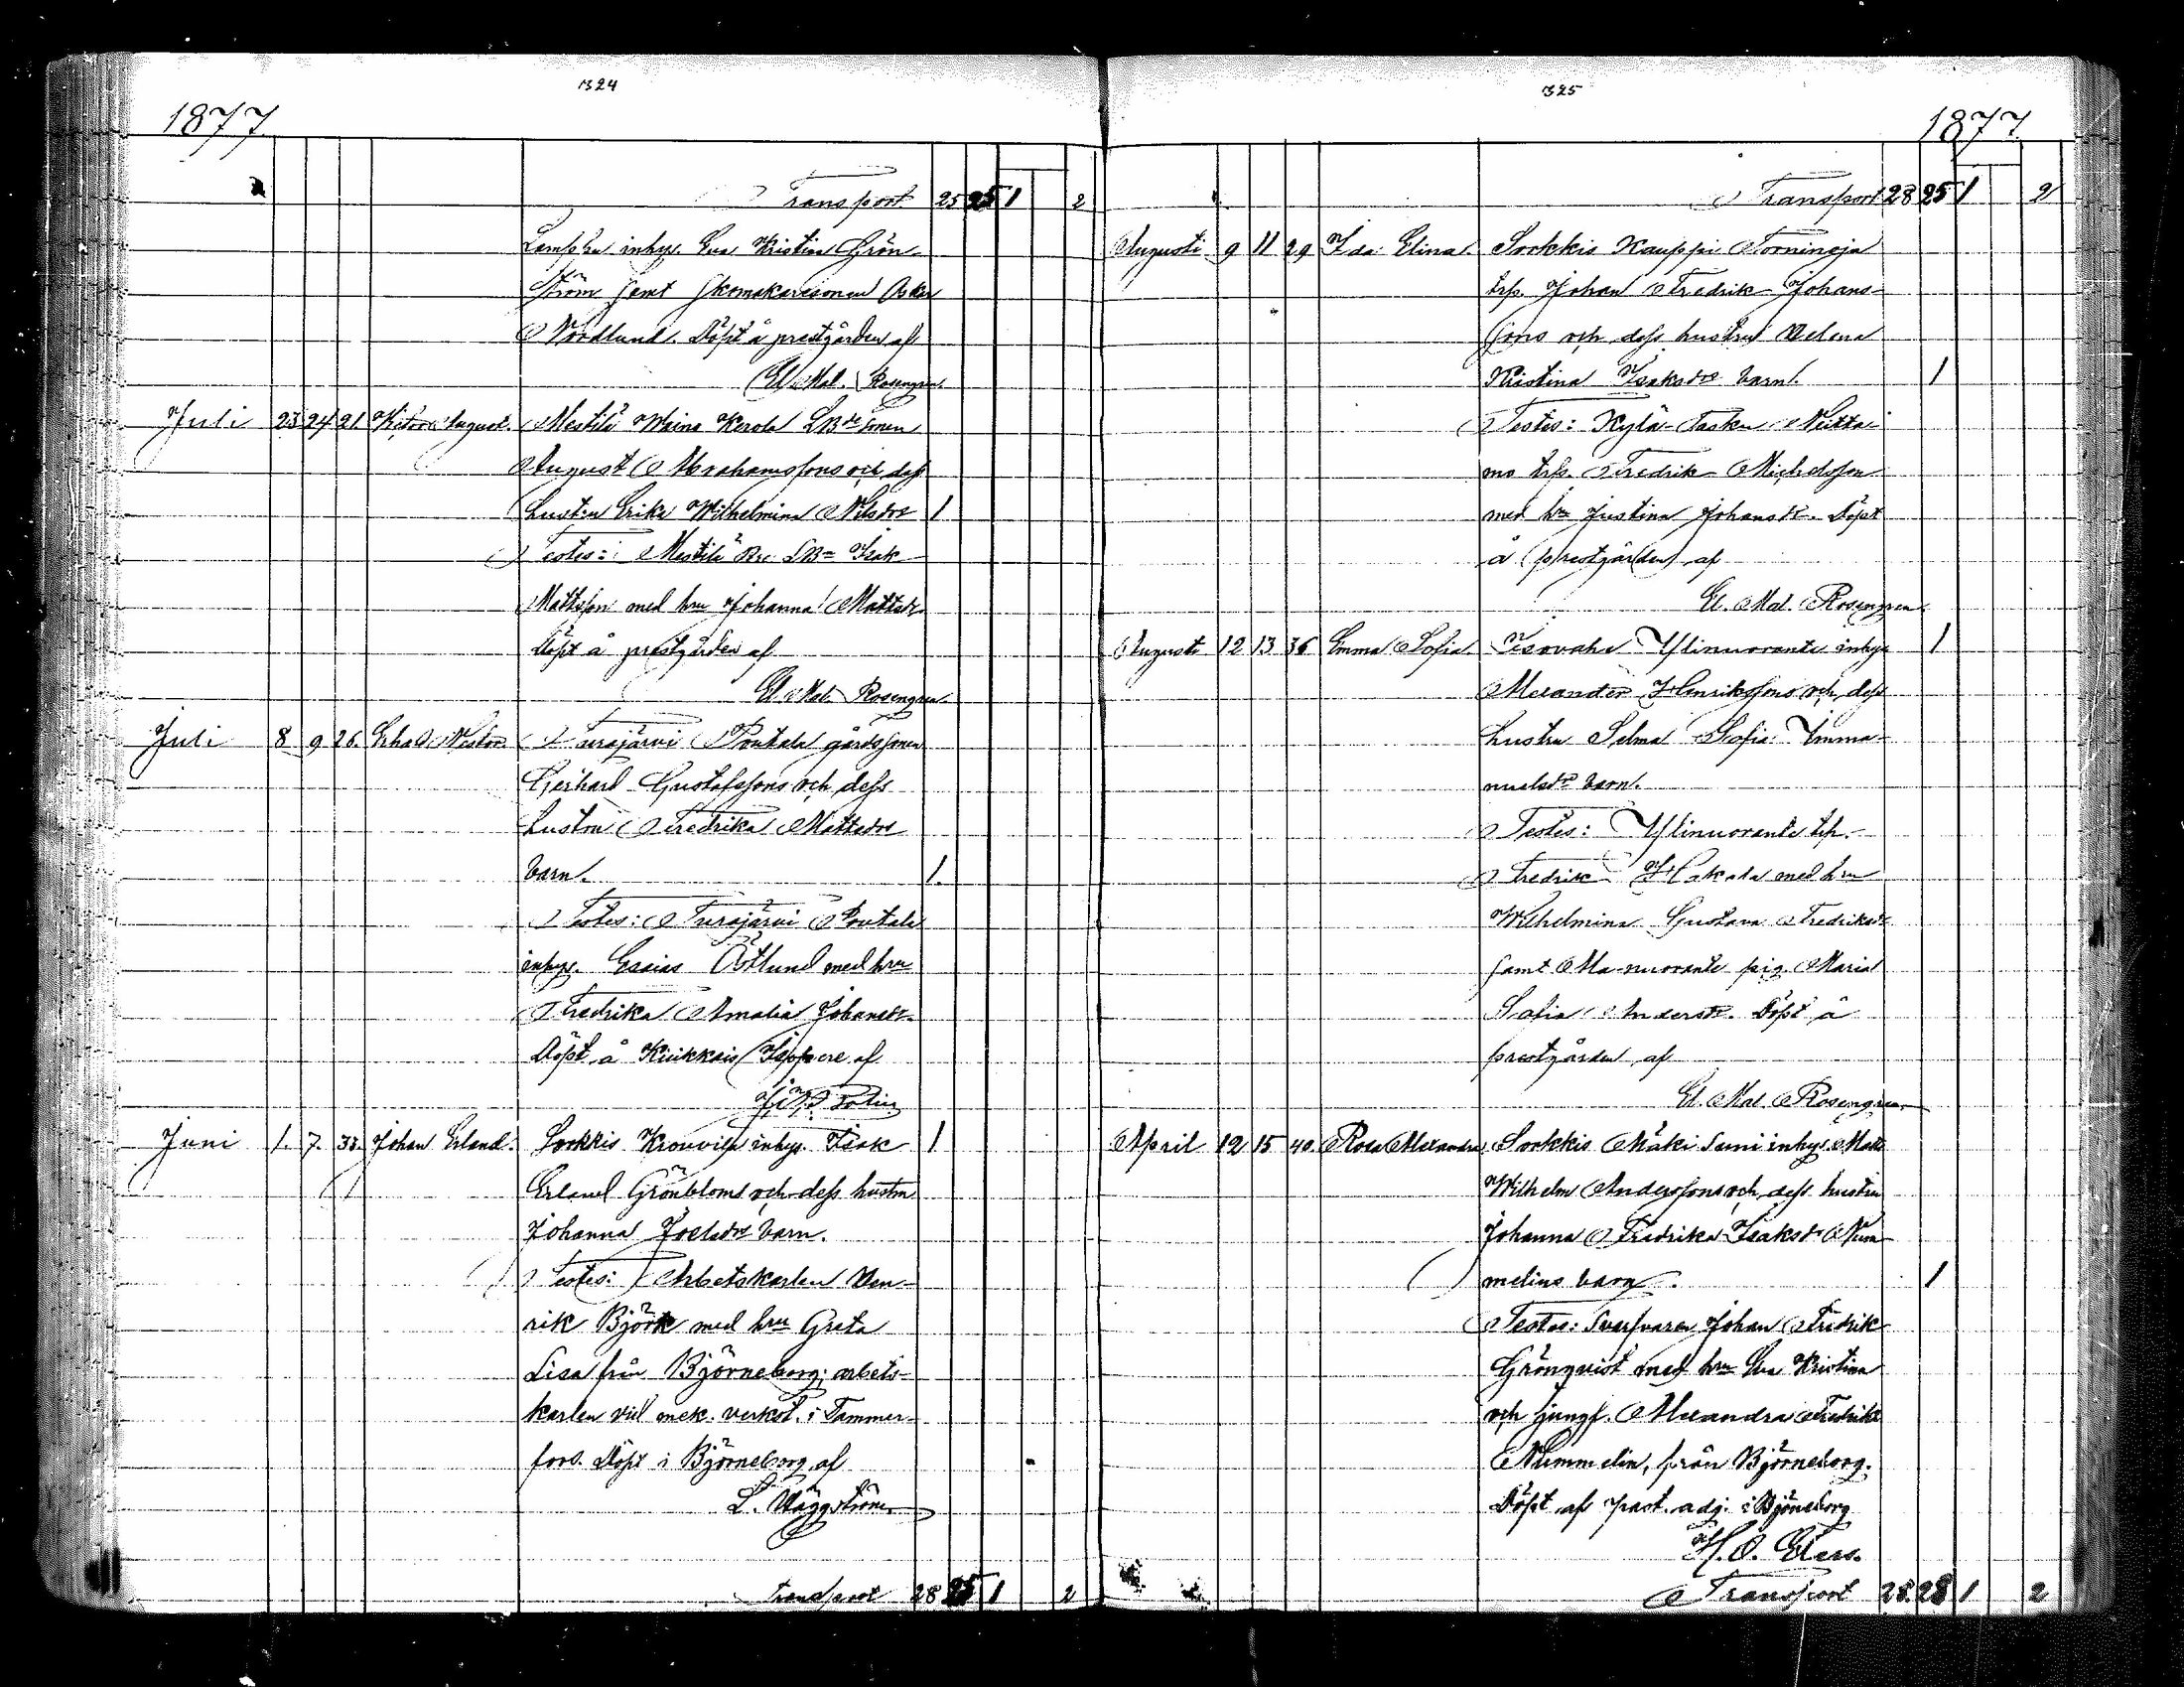 1324
1877
Transport 25 25 1 2
inhys. Eva Kristina Grön-
ström jemt skomakaresonen Oskar
Nordlund. Döpt å prestgården af
El. Mal. Rosengren
Juli 23 24 21 Viktor August. Mestilä Waina Kerola LB. sonen
August Abrahamssons och dess
hustru Erika Wilhelmina Nilsdr 1
Testes: Mestilä LB Isak
Mattsson med hru Johanna Mattsdr
Döpt å prestgården af
El. Mal. Rosengren
Juli 8 9 26. Nestor Turajärvi Poutala gårdssonen
Gerhard Gustafssons och dess
hustru Fredrika Mattsdr
barn. 1.
Testes: Turajärvi Poutala
inhys. Esaias Östlund med hru
Fredrika Amalia Johansdr
Döpt å Kiukkais af

Juni 1. 7. 33. Johan Erland. Sorkkis inhys. Isak 1
Erland Grönbloms och dess hustru
Johanna Joelsdr barn.
Testes: Arbetskarlen Hen-
rik Björk med hru Greta
Lisa från Björneborg; arbets-
karlen vid mek. verkst. i Tammer-
fors. Döpt i Björneborg af
L. Häggström
Transport 28 25 1 2
1325
1877
Transport 28 25 1 2
Augusti 9 11 29 Ida Elina. Sorkkis Kauppi Torninoja
trp. Johan Fredrik Johans-
sons och dess hustru Helena
Kristina Isaksdr barn. 1
Testes: Kylä-Pasku Neitta-
mo trp. Fredrik Michelsson
med hru Justina Johansdr. Döpt
å prestgården af
El. Mal. Rosengren
Augusti 12 13 36 Emma Sofia Ylinuorante inhys 1
Alexander Henrikssons och dess
hustru Selma Sofia Imma-
nuelsdr barn.
Testes: Ylinuorante trp.
Fredrik Hakala med hru
Wilhelmina Gustava Fredriksdr
samt Ala-nuorante pig. Maria
Sofia Andersdr. Döpt å
prestgården af
El. Mal. Rosengren
April 12 15 40. Rosa Alexandra Sorkkis Mäki Suni inhys. Matts
Wilhelm Anderssons och dess hustru
Johanna Fredrika Isaksdr Num-
melins barn. 1
Testes: Svarfvaren Johan Fredrik
Grönqvist med hru Eva Kristina
och jungf. Alexandra Fredrika
Nummelin, från Björneborg.
Döpt af past. adj. i Björneborg
H. O. Elers.
Transport 28. 28 1 2